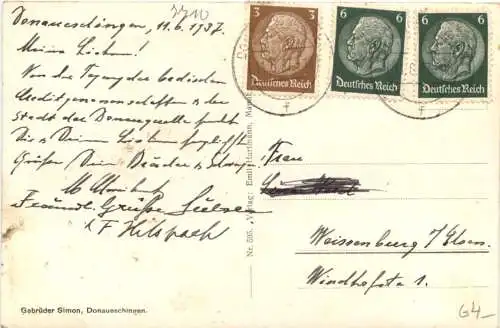 Donaueschingen, 11.6.1937.
Meine Lieben!
Von der Tagung der badischen
Kreditgenossenschaften in der
Stadt der Donauquelle sendet
Dir u. Deinen Lieben herzliche
Grüsse Dein Bruder u. Schwager
Freundl. Grüsse
F Hilspach
Gebrüder Simon, Donaueschingen.
Nr. 595. Verlag: Emil Hartmann,
3
Deutsches Reich
6
Deutsches Reich
6
Deutsches Reich
Frau
Weissenburg / Elsass.
Windhofstr 1.
G4-